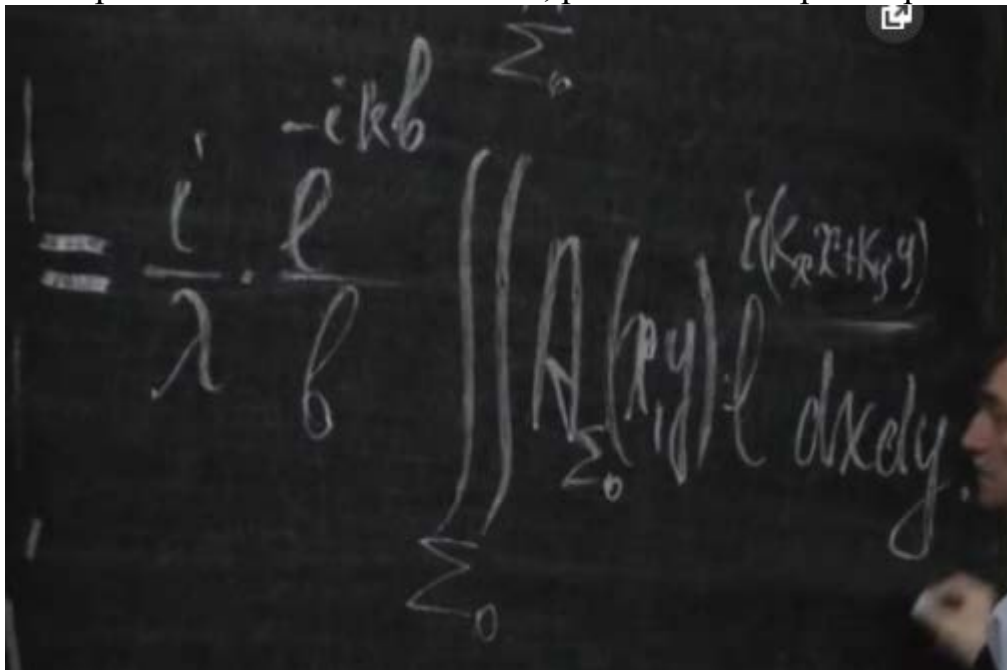 Σ₀
= i/λ · e^{-ikb}/b ∬_{Σ₀} A_{Σ₀}(x,y) · e^{i(Kₓx+K_y y)} dxdy.